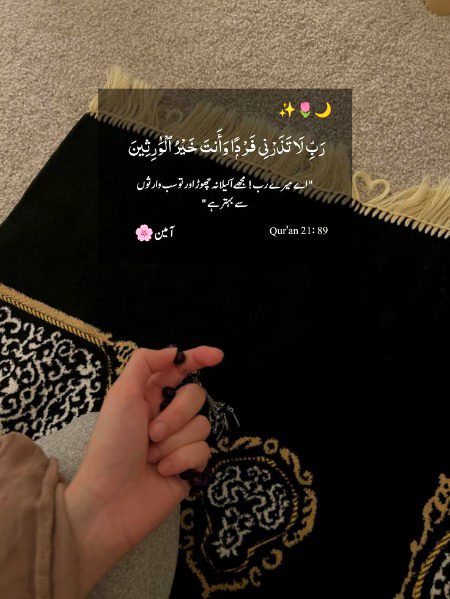 ✨🌷🌙
رَبِّ لَا تَذَرْنِي فَرْدًا وَأَنتَ خَيْرُ الْوَٰرِثِينَ
"اے میرے رب! مجھے اکیلا نہ چھوڑ اور تو سب وارثوں
سے بہتر ہے"
آمین🌸
Qur'an 21: 89